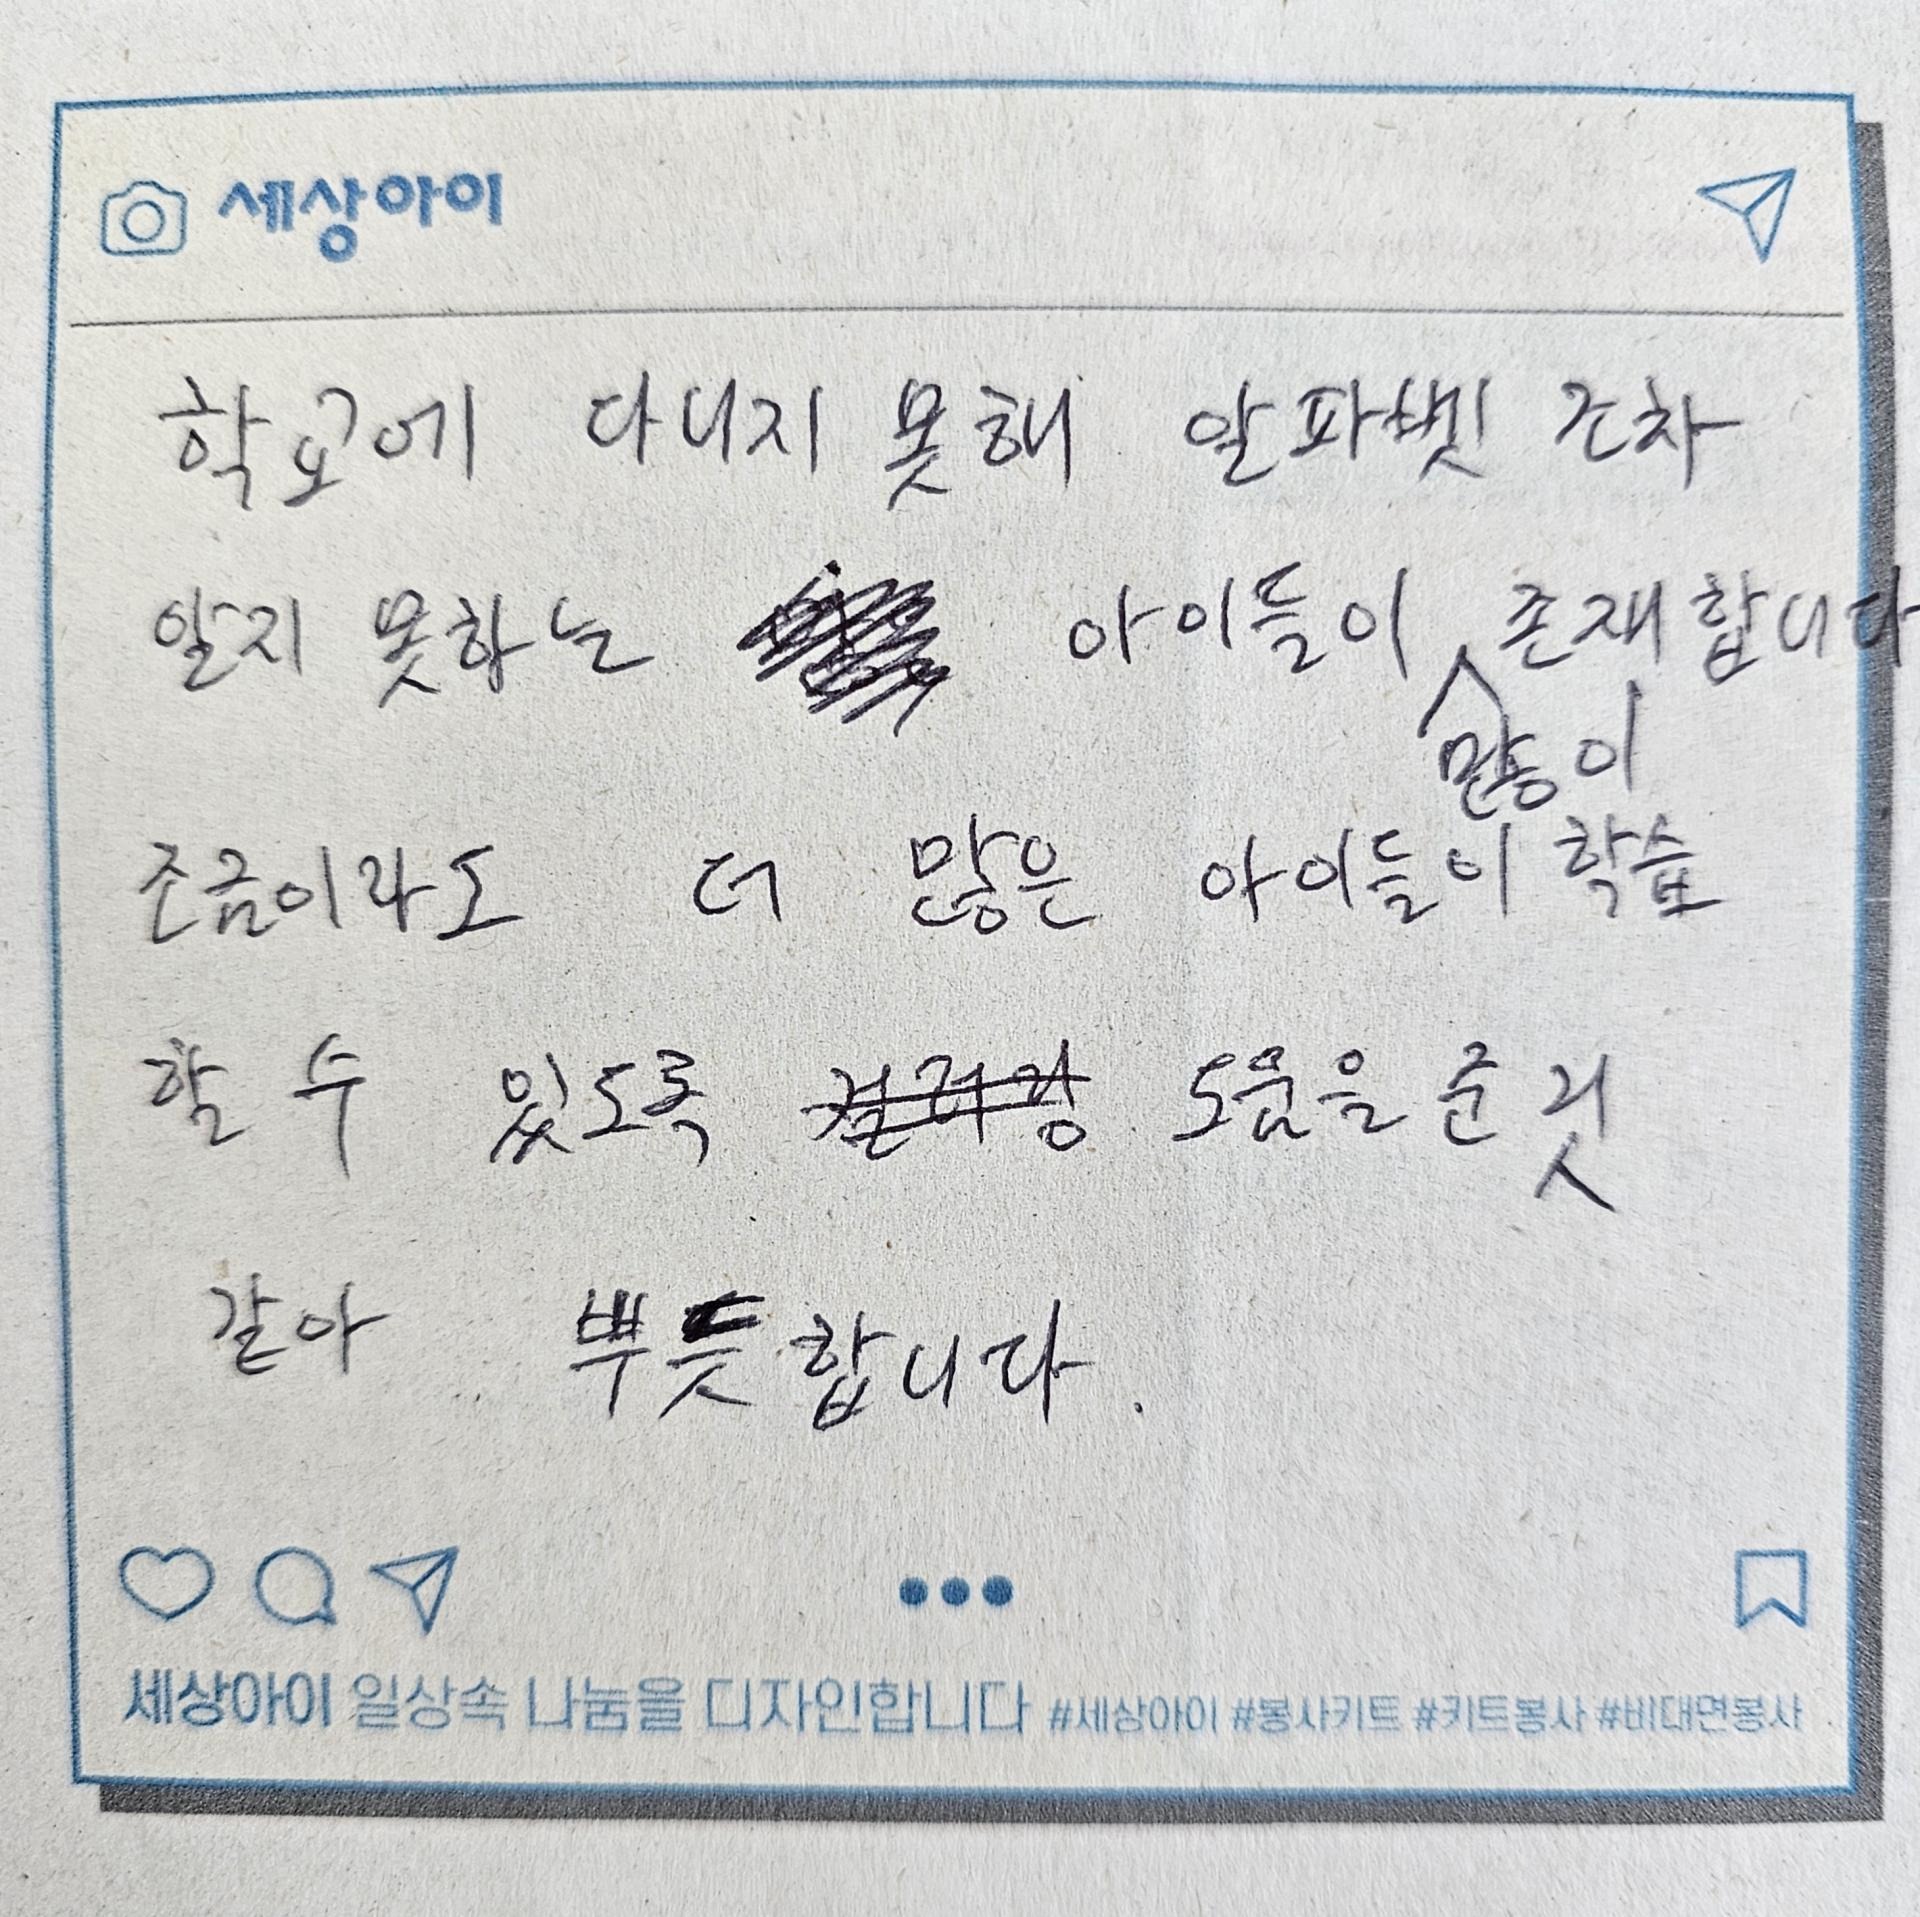 세상아이
학교에 다니지 못해 알파벳 조차
알지 못하는 아이들이 존재합니다
많이
조금이라도 더 많은 아이들이 학습
할 수 있도록 컬러링 도움을 준 것
같아 뿌듯합니다.
세상아이 일상속 나눔을 디자인합니다 #세상아이 #봉사키트 #키트봉사 #비대면봉사